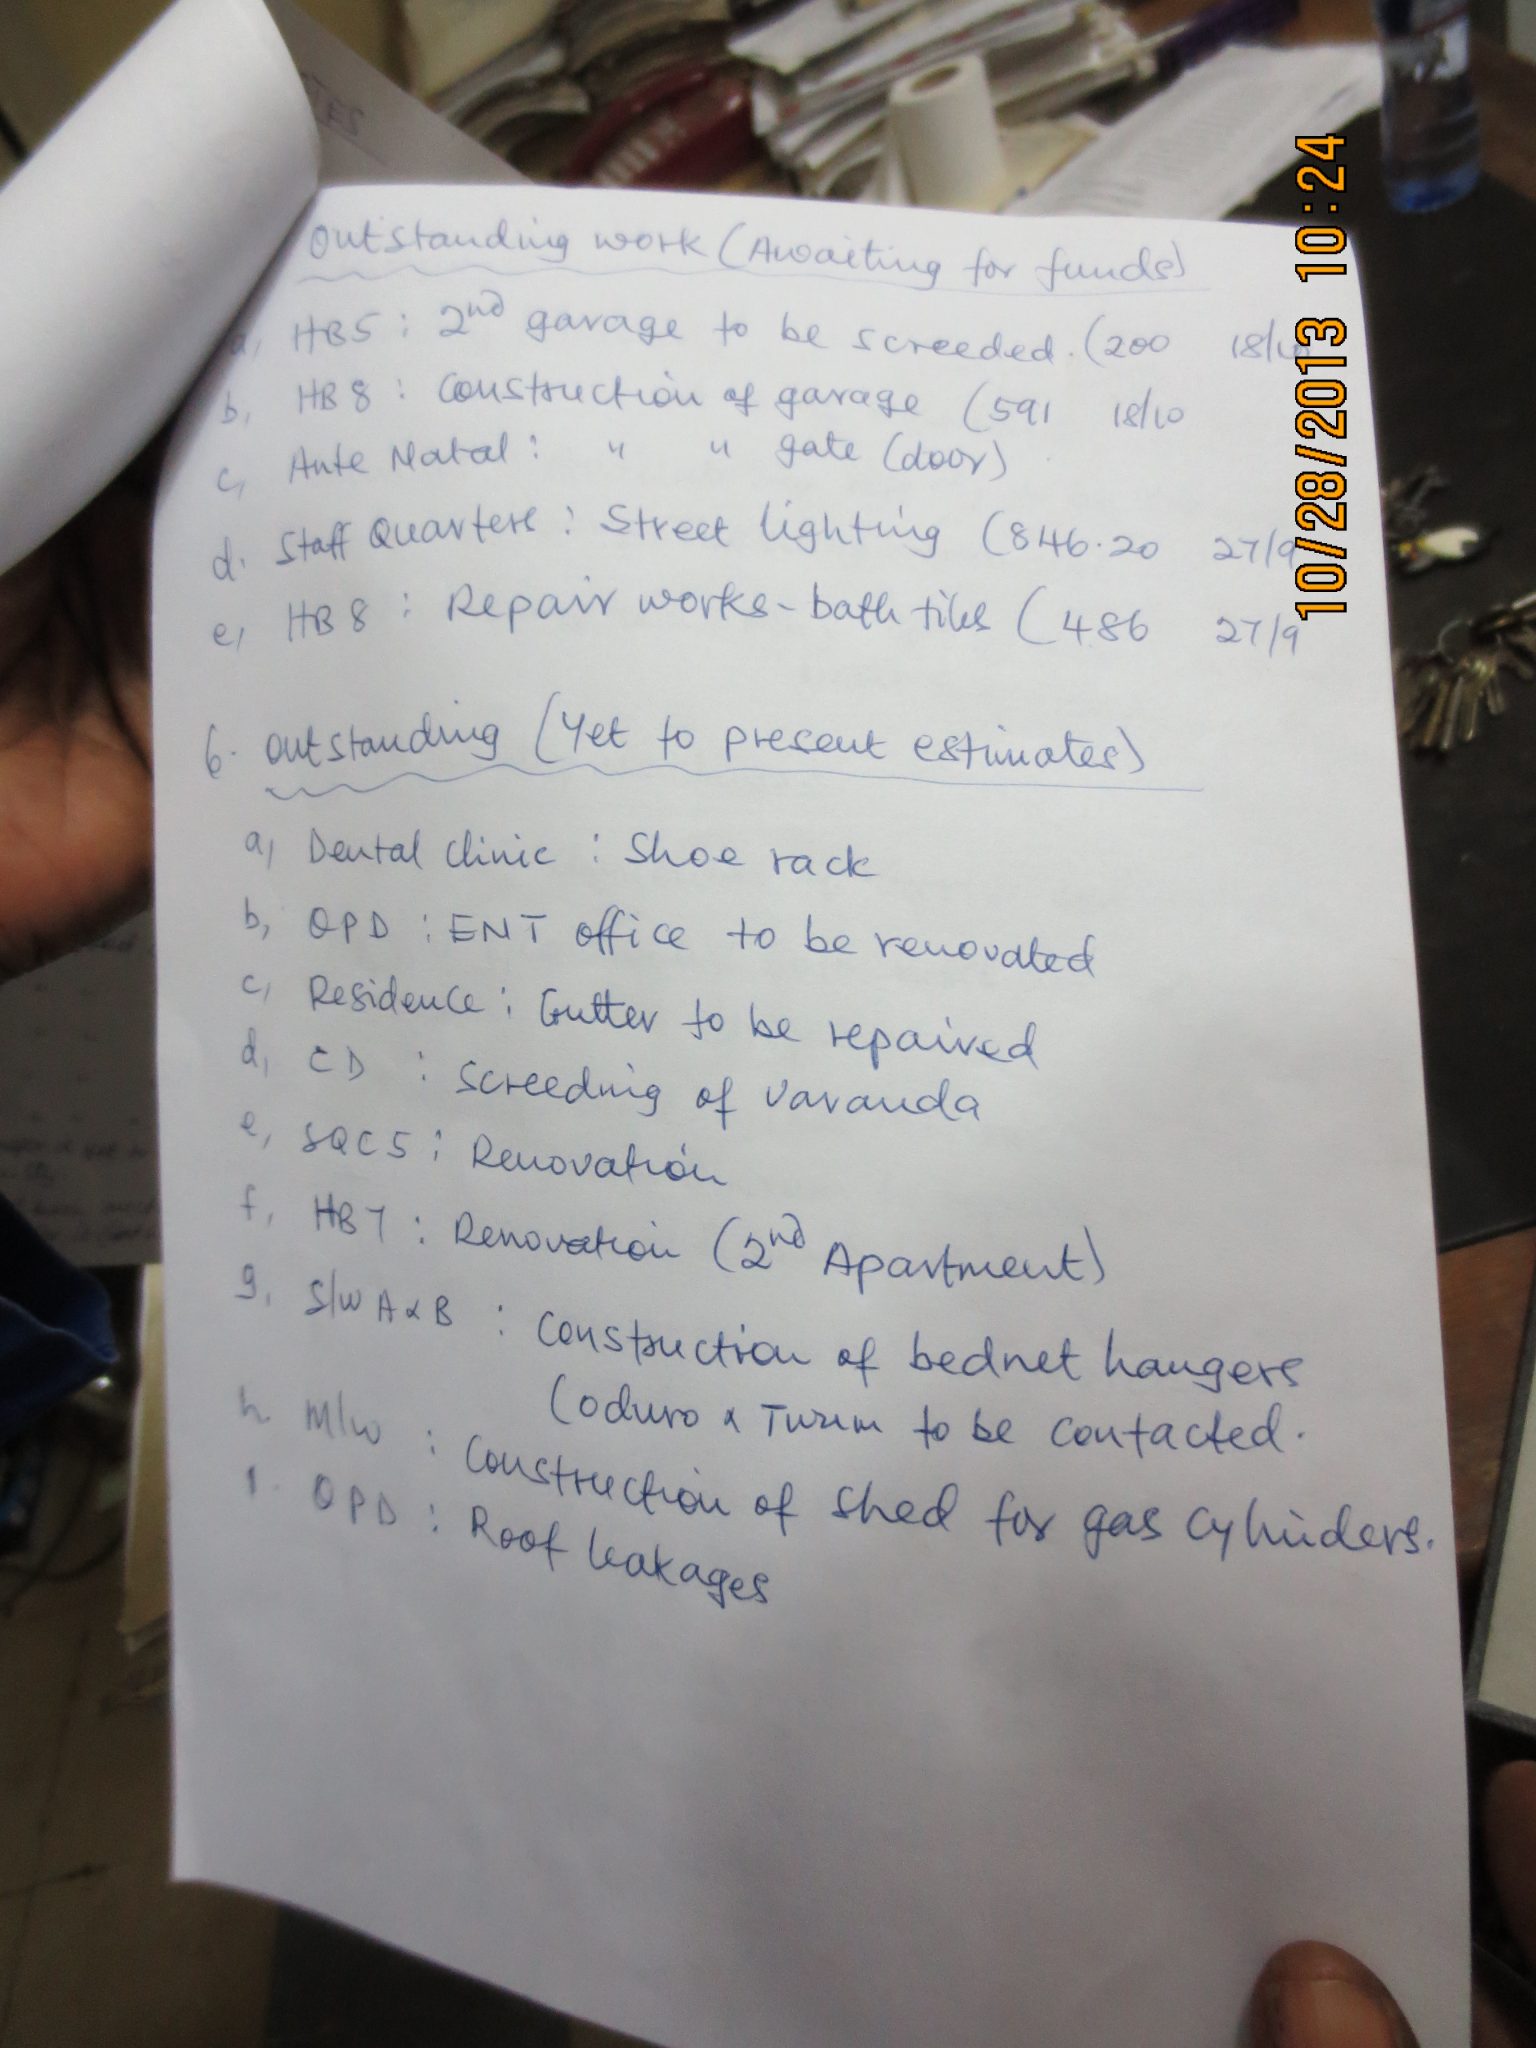 Outstanding work (Awaiting for funds)
a, HB5 : 2nd garage to be screeded. (200 18/10
b, HB 8 : Construction of garage (591 18/10
c, Ante Natal : " " gate (door)
d. Staff Quarters : Street lighting (846.20 27/9
e, HB 8 : Repair works - bath tiles (486 27/9
6. Outstanding (Yet to present estimates)
a, Dental clinic : Shoe rack
b, OPD : ENT office to be renovated
c, Residence : Gutter to be repaired
d, CD : Screeding of varanda
e, SQC5 : Renovation
f, HB7 : Renovation (2nd Apartment)
g, S/W A & B : Construction of bednet hangers
(Oduro & to be contacted.
h. M/W : Construction of shed for gas cylinders.
i. OPD : Roof leakages
10/28/2013 10:24